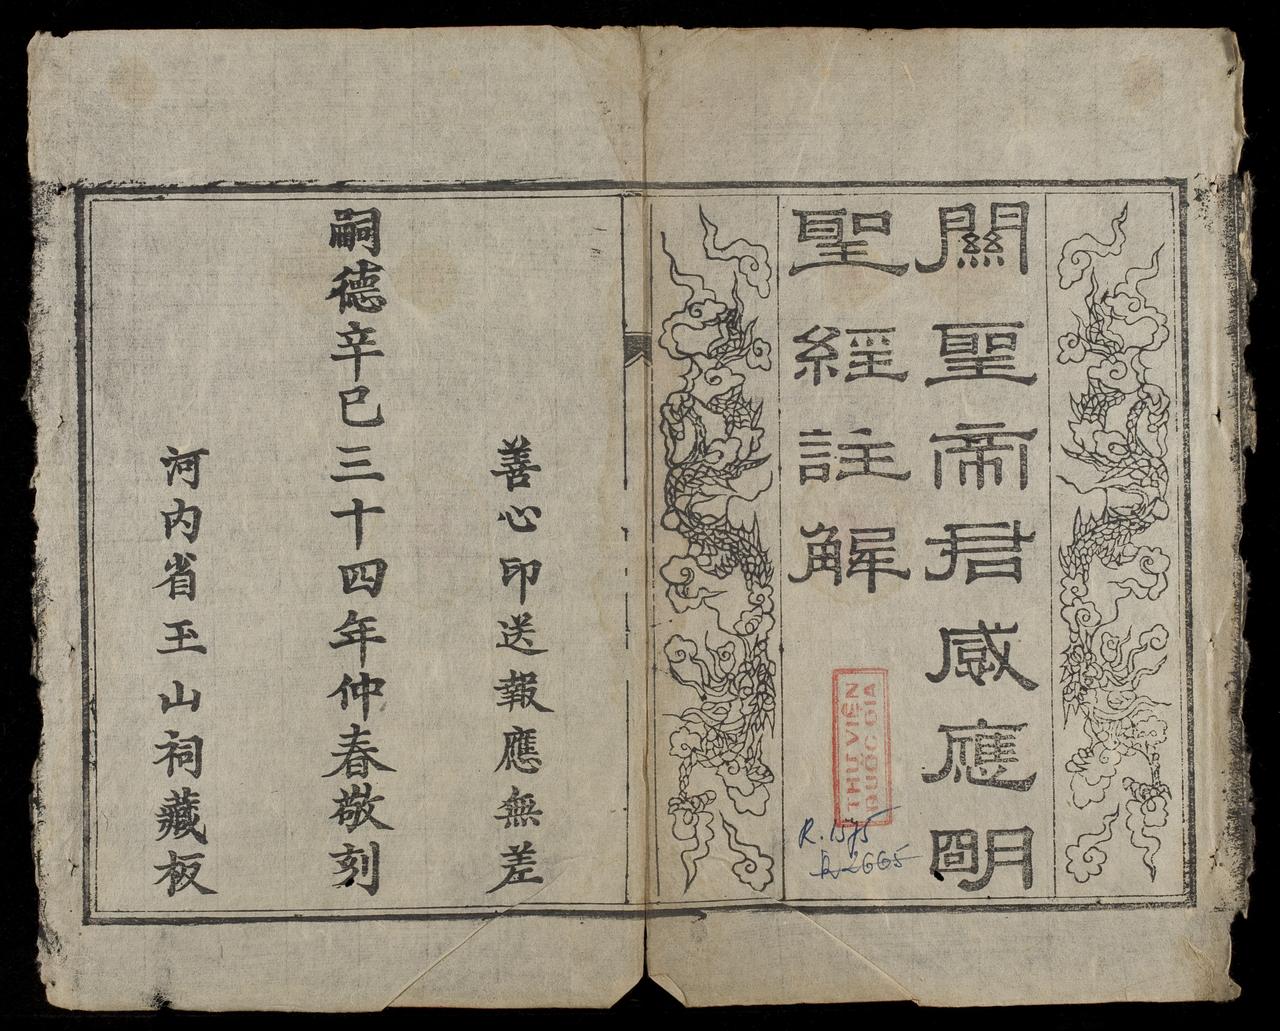 關聖帝君感應明
聖經註解
THƯ VIỆN
QUỐC GIA
R.1575
R-2665
善心印送報應無差
嗣德辛巳三十四年仲春敬刻
河内省玉山祠藏板